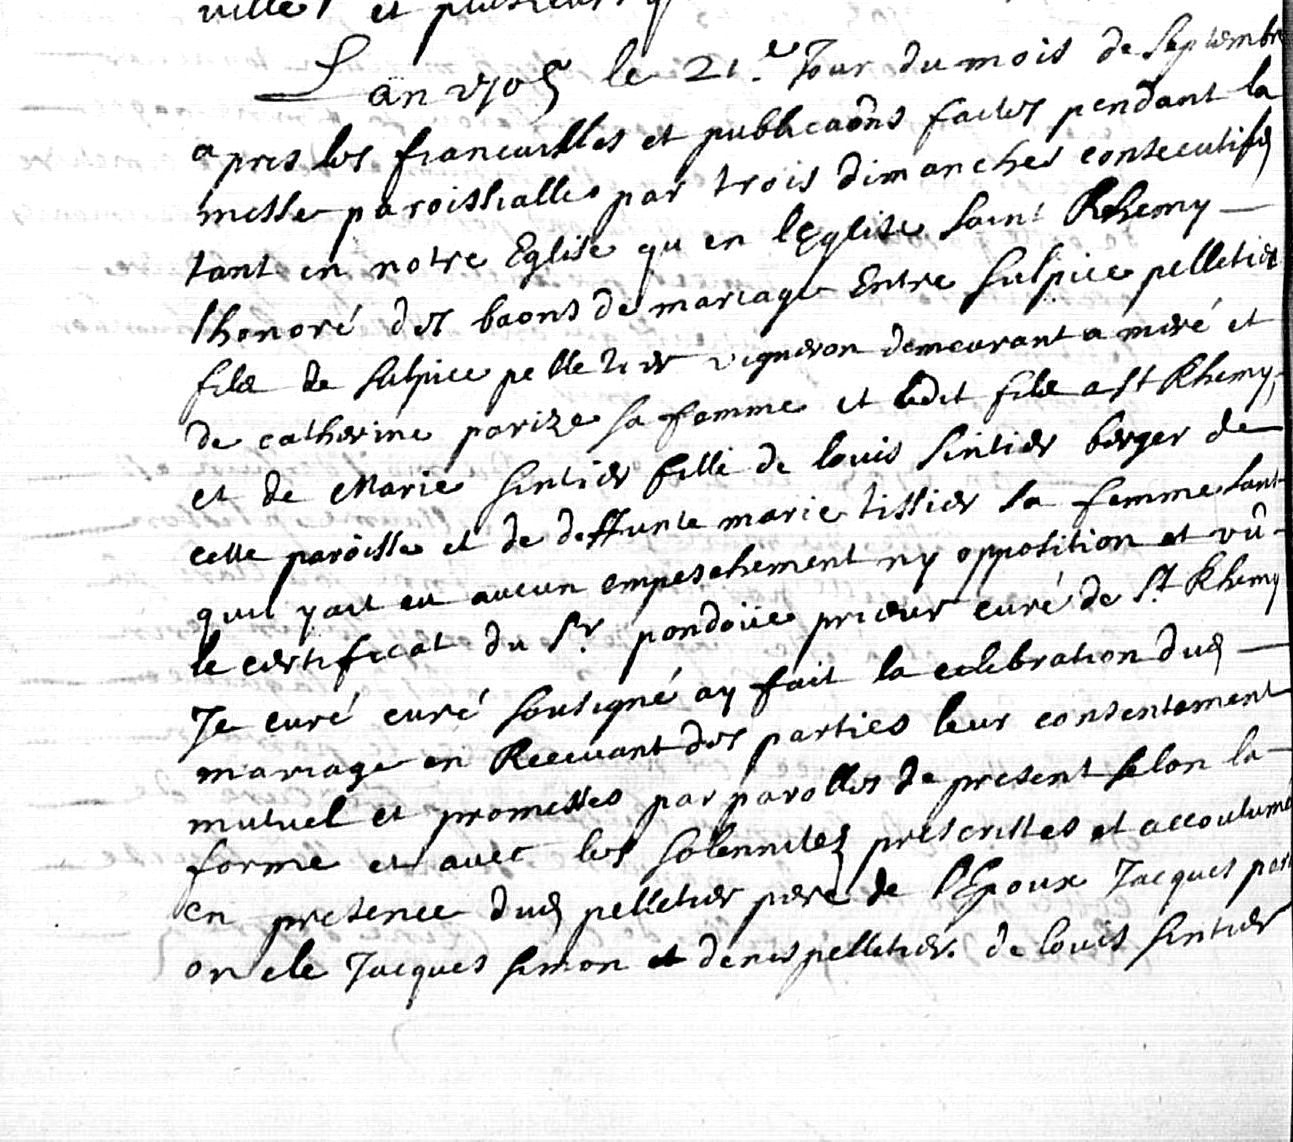 ville et plusieurs
Lan 1705 le 21.e Jour du mois de Septembre
apres les fiancailles et publicaõns faites pendant la
messe paroissialles par trois dimanches consecutifs
tant en notre Eglise qu en lEglise saint Rhemy
lhonoré des baons de mariage Entre sulpice pelletier
fils de sulpice pelletier vigneron demeurant a méré et
de catherine parize sa femme et ledit fils a st Rhemy,
et de Marie sintier fille de louis sintier berger de
cette paroisse et de deffunte marie tissier sa femme sant
quil yait eu aucun empeschement ny opposition et vû
le certificat du Sr. pondoüe prieur curé de St Rhemy
Je curé curé sousigné ay fait la celebration dud
mariage en Recevant des parties leur consentement
mutuel et promesses par parolles de present selon la
forme et avec les solennitez prescrittes et accoutumé
en presence dud pelletier pere de l'Epoux Jacques
oncle Jacques simon et denis pelletier. de louis sintier